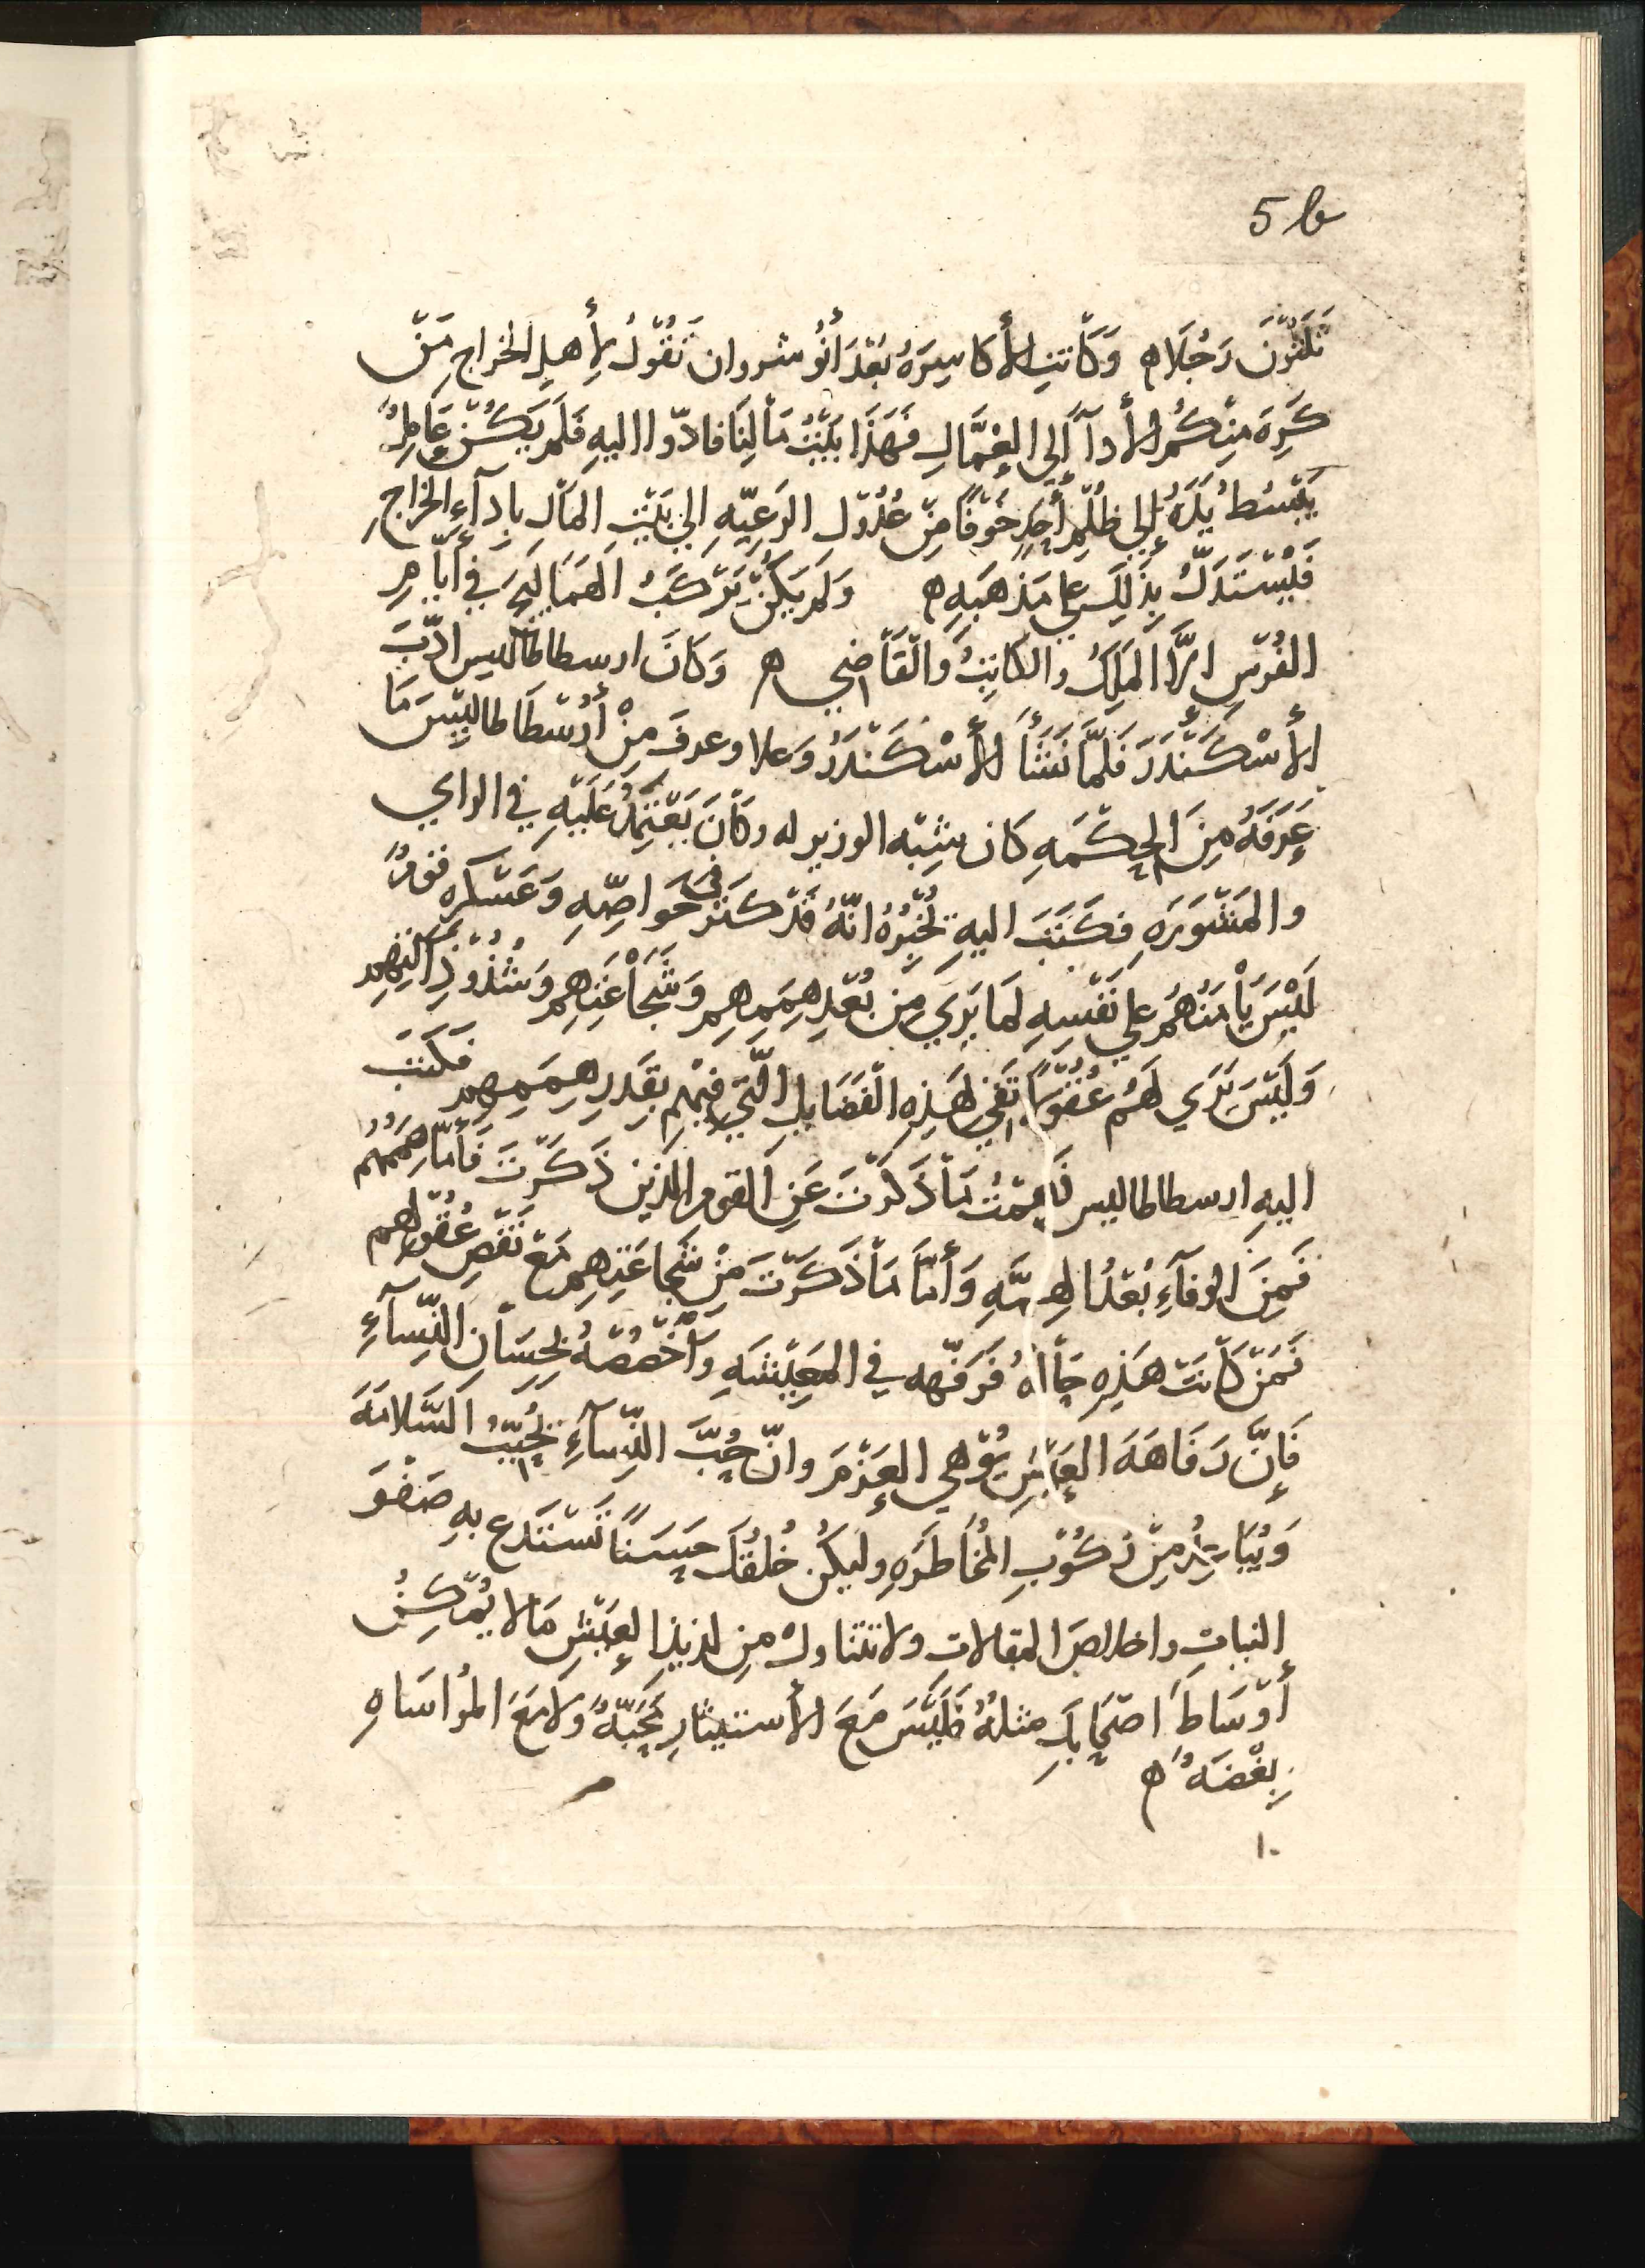 5 b
ثلثون رَجُلاً ه وَكَانت الأكاسِرَةُ بَعْدَ أنُوشروان تَقُولُ لِأهلِ الخراج مَنْ
كَرِهَ مِنكُم الأداءَ إلى العُمَّالِ فَهَذَا بَيْتُ مَالِنَا فادّوا اليهِ فَلَم يَكُنْ عَامِلٌ
يَبْسُطُ يَدَهُ إلى ظُلْمِ أحَدٍ خَوْفًا مِنْ عُدُوْلِ الرَعِيّهِ الي بَيْتِ المَالِ بادآءِ الخراجِ
فَيُسْتَدَلُّ بِذَلِكَ على مَذهَبِهِ ه وَلَم يَكُنْ يَرْكَبُ الهَمَاليجَ في أيَّامِ
الفُرْسِ الَّا المَلِكُ والكاتِبُ وَالْقَاضِي ه وَكَانَ ارسطاطاليس ادّبَ
الأسْكَنْدَرَ فَلَمَّا نَشَأَ الأسْكَنْدَرُ وَعلا وعرفَ مِنْ أرُسْطَاطاليِسَ مَا
عَرَفَهُ مِنَ الحِكْمَهِ كان شِبْه الوزير له وكَانَ يَعْتَمِدُ عَلَيْهِ في الراي
والمَشْوَرَهِ فكَتَبَ اليهِ يُخْبِرُهُ انّهُ قَدْ كَثُرَ في خَوَاصِّهِ وَعَسْكَرِهِ قومٌ
لَيْسَ يَأْمَنُهُم على نَفْسِهِ لمَا يَرَي مِن بُعْدِ هِمَمِهِم وَشَجَاعَتِهِم وَشُذُوْذِ آلتِهِم
وَلَيْسَ يَرَي لَهُم عُقُوْلًا تَفِي بهَذِهِ الْفَضَايلِ الّتي فِيْهِم بِقَدَرِ هِمَمِهِم فكَتَبَ
اليهِ ارسطاطاليس فَهِمْتُ مَا ذَكَرْتَ عَنِ القوم الذين ذَكَرْتَ فَأمّا هِمَمُهُم
فَمِنَ الوفآءِ بُعْدُ الهِمَّهِ وَأمَّا مَا ذَكَرْتَ مِنْ شَجاعَتِهِم مَعَ نَقْصِ عُقُوْلِهِم
فَمَنْ كَانَت هَذِهِ حَالُهُ فَرَفّهه في المَعِيْشَهِ وَاخْصُصْهُ بحِسَانِ النِّسآءِ
فَإِنَّ رَفَاهَهَ العَيْشِ تُوْهي العَزْمَ وانّ حُبَّ النِّسآءِ يُحَبِّبُ السَّلامَهَ
وَيُبَاعِدُ مِنْ رُكُوْبِ المُخَاطَرَهِ وليكُن خُلُقُكَ حَسَنًا تَسْتَدع بهِ صَفْوَ
النياتِ واخلاصَ المقالات ولا تتناول مِن لذيذ العَيْشِ مَالا يُمْكِنُ
أوْسَاطَ اصحَابِكَ مثلهُ فَلَيْسَ مَعَ الأستيثارِ مَحَبَّهٌ وَلا مَعَ المؤاسَاهِ
بِغْضَهٌ ه